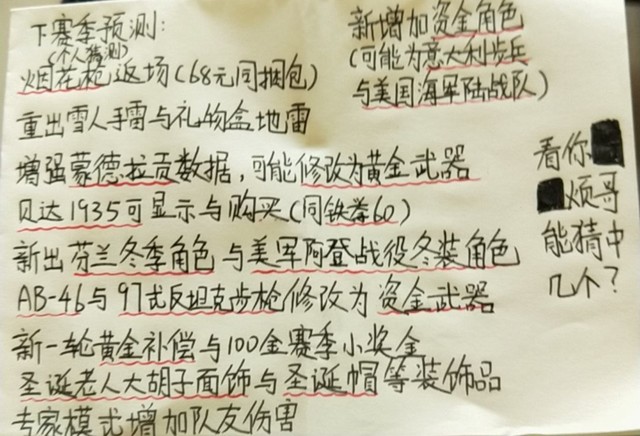 下赛季预测:
(个人猜测)
烟花枪返场(68元同捆包)
重出雪人手雷与礼物盒地雷
增强蒙德拉贡数据,可能修改为黄金武器
贝达1935可显示与购买(同铁拳60)
新出芬兰冬季角色与美军阿登战役冬装角色
AB-46与97式反坦克步枪修改为资金武器
新一轮黄金补偿与100金赛季小奖金
圣诞老人大胡子面饰与圣诞帽等装饰品
专家模式增加队友伤害
新增加资金角色
(可能为意大利步兵
与美国海军陆战队)
看你
烦哥
能猜中
几个?